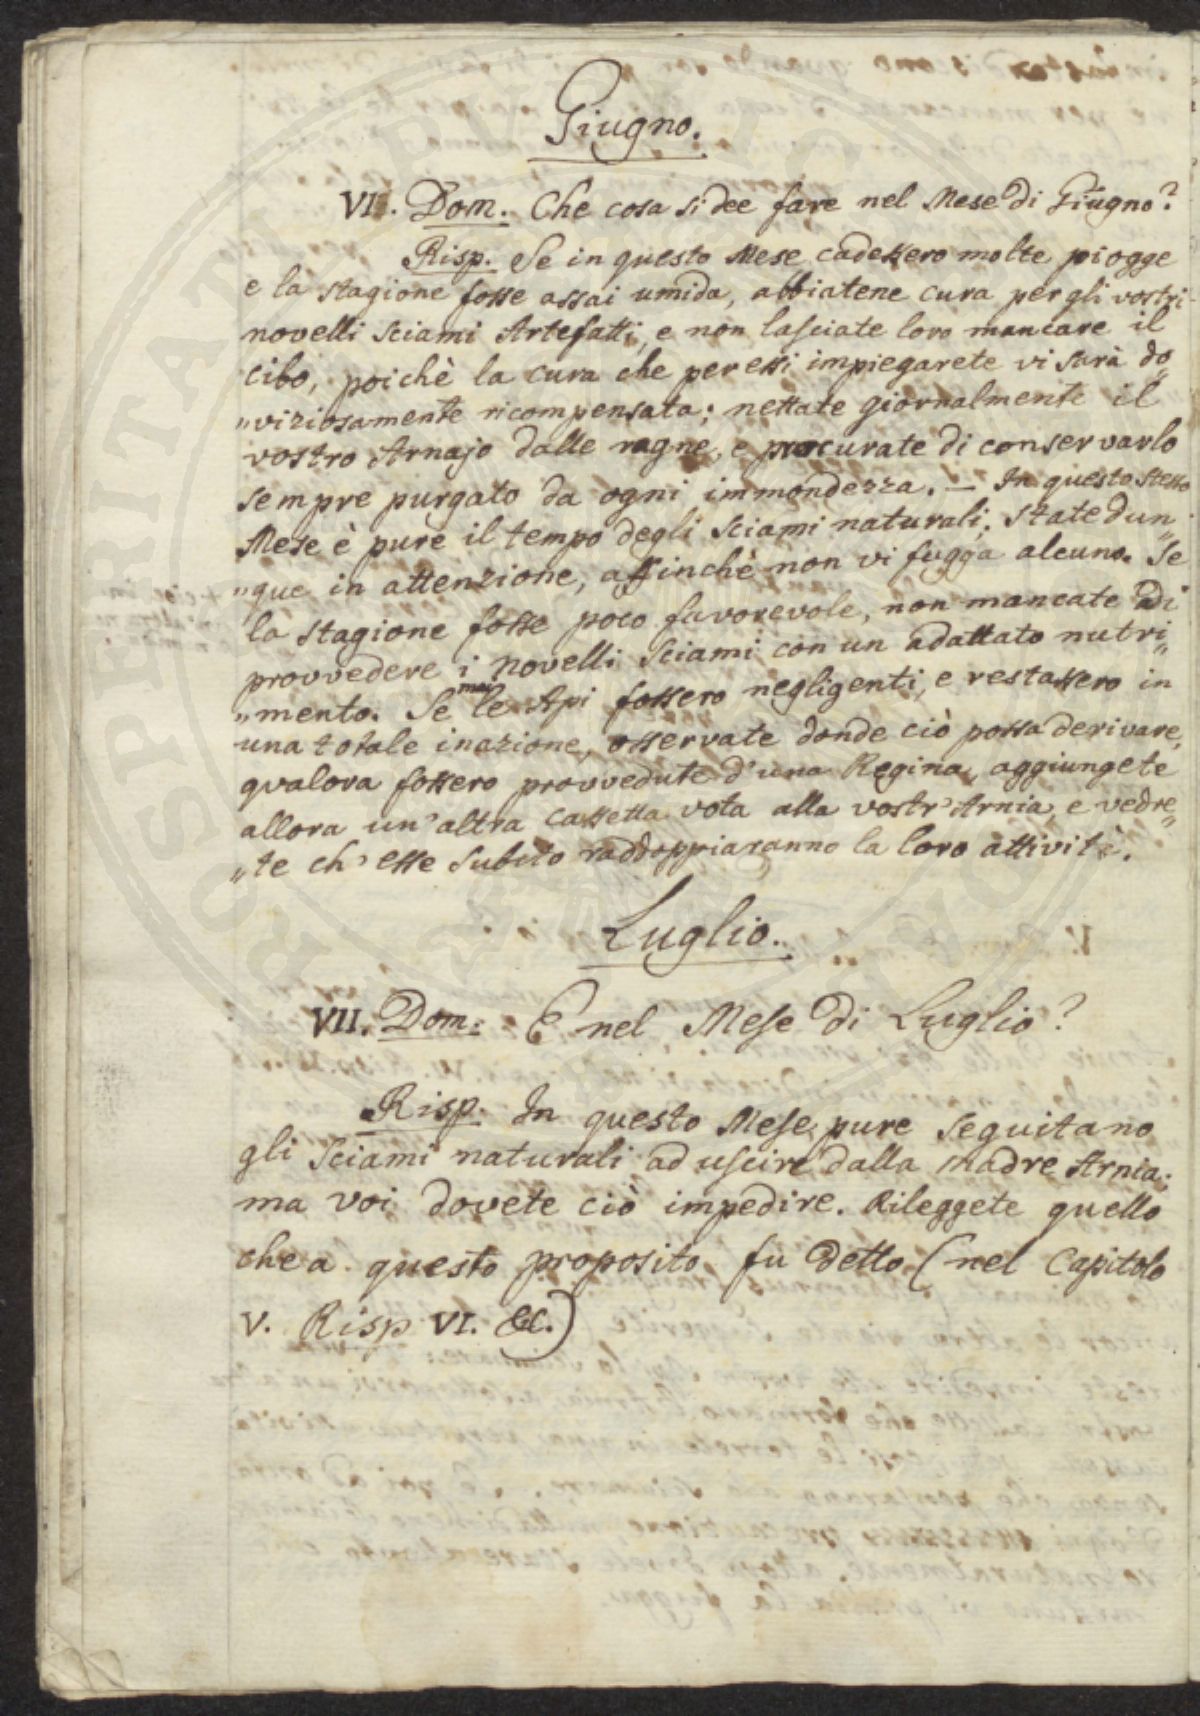 Giugno.
VI. Dom. Che cosa si dee fare nel Mese di Giugno?
Risp. Se in questo Mese cadessero molte piogge
e la stagione fosse assai umida, abbiatene cura per gli vostri
novelli Sciami Artefatti, e non lasciate loro mancare il
cibo, poichè la cura che per essi impiegarete vi sarà do„
„viziosamente ricompensata; nettate giornalmente il
vostro Arnajo dalle ragne, e procurate di conservarlo
sempre purgato da ogni immondezza. — In questo stesso
Mese è pure il tempo degli Sciami naturali; state dun„
„que in attenzione, affinchè non vi fugga alcuno. Se
la stagione fosse poco favorevole, non mancate di
provvedere i novelli Sciami con un adattato nutri„
„mento. Se mai le Api fossero negligenti, e restassero in
una totale inazione, osservate donde ciò possa derivare,
qualora fossero provvedute d'una Regina, aggiungete
allora un'altra cassetta vota alla vostr'Arnia, e vedre„
„te ch'esse subito raddoppiaranno la loro attività.
Luglio.
VII. Dom: E nel Mese di Luglio?
Risp. In questo Mese pure seguitano
gli Sciami naturali ad uscire dalla madre Arnia;
ma voi dovete ciò impedire. Rileggete quello
che a questo proposito fu detto (nel Capitolo
V. Risp VI. &c.)